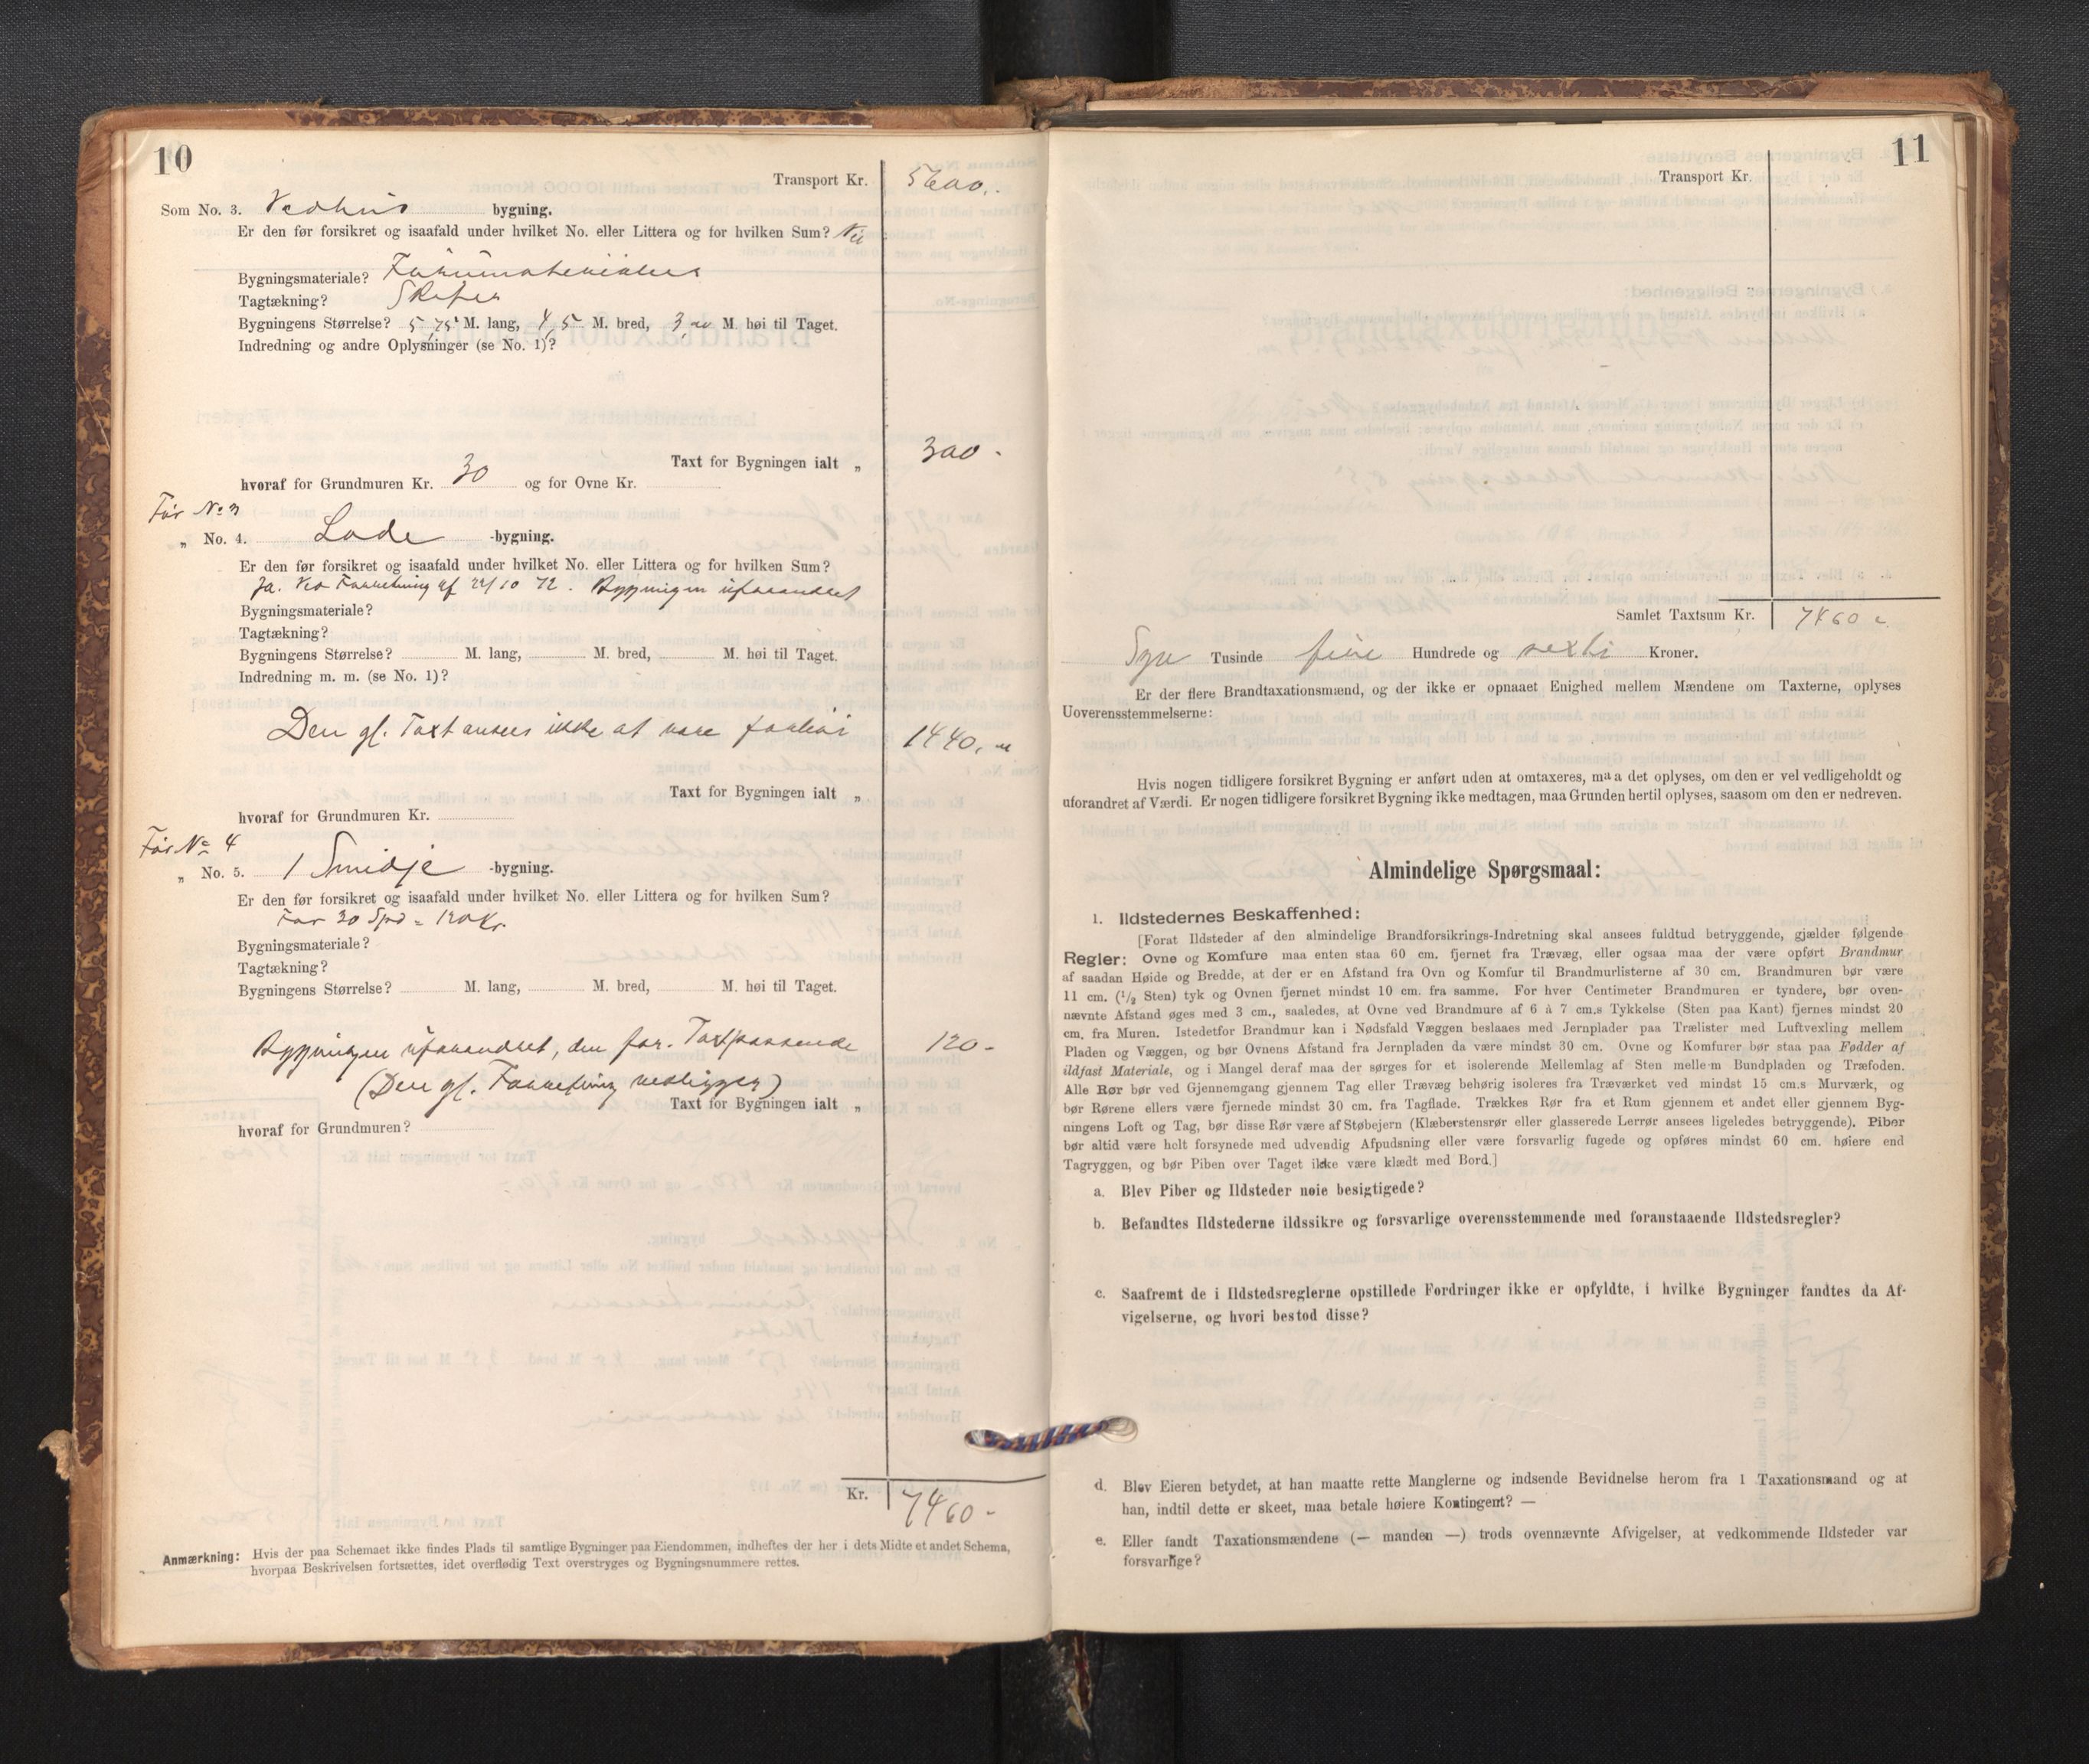 10
Transport Kr. 5600,.
Som No. 3. Vedhus bygning.
Er den før forsikret og isaafald under hvilket No. eller Littera og for hvilken Sum? Nei
Bygningsmateriale? Furumaterialer
Tagtækning? Skifer
Bygningens Størrelse? 5,75 M. lang, 4,5 M. bred, 3,00 M. høi til Taget.
Indredning og andre Oplysninger (se No. 1)?
Taxt for Bygningen ialt „ 300 -
hvoraf for Grundmuren Kr. 30 og for Ovne Kr.
Før No 3
„ No. 4. Lade -bygning.
Er den før forsikret og isaafald under hvilket No. eller Littera og for hvilken Sum?
Ja. Ved Forretning af 22/10 72. Bygningen uforandret
Bygningsmateriale?
Tagtækning?
Bygningens Størrelse? M. lang, M. bred, M. høi til Taget.
Indredning m. m. (se No. 1)?
Den gl. Taxt ansees ikke at være for høi 1440,
Taxt for Bygningen ialt „
hvoraf for Grundmuren Kr.
Før No 4
„ No. 5. 1 Smidje -bygning.
Er den før forsikret og isaafald under hvilket No. eller Littera og for hvilken Sum?
For 30 Spd = 120 Kr.
Bygningsmateriale?
Tagtækning?
Bygningens Størrelse? M. lang, M. bred, M. høi til Taget.
Bygningen uforandret, den for. Taxt passende 120 -
(Den gl. Forretning vedligger)
Taxt for Bygningen ialt „
hvoraf for Grundmuren?
Kr. 7460 -
Anmærkning: Hvis der paa Schemaet ikke findes Plads til samtlige Bygninger paa Eiendommen, indheftes der her i dets Midte et andet Schema,
hvorpaa Beskrivelsen fortsættes, idet overflødig Text overstryges og Bygningsnummere rettes.
11
Transport Kr.
Samlet Taxtsum Kr. 7460
Syv Tusinde fire Hundrede og sexti Kroner.
Er der flere Brandtaxationsmænd, og der ikke er opnaaet Enighed mellem Mændene om Taxterne, oplyses
Uoverensstemmelserne:
Hvis nogen tidligere forsikret Bygning er anført uden at omtaxeres, maa det oplyses, om den er vel vedligeholdt og
uforandret af Værdi. Er nogen tidligere forsikret Bygning ikke medtagen, maa Grunden hertil oplyses, saasom om den er nedreven.
Almindelige Spørgsmaal:
1. Ildstedernes Beskaffenhed:
[Forat Ildsteder af den almindelige Brandforsikrings-Indretning skal ansees fuldtud betryggende, gjælder følgende
Regler: Ovne og Komfure maa enten staa 60 cm. fjernet fra Trævæg, eller ogsaa maa der være opført Brandmur
af saadan Høide og Bredde, at der er en Afstand fra Ovn og Komfur til Brandmurlisterne af 30 cm. Brandmuren bør være
11 cm. (1/2 Sten) tyk og Ovnen fjernet mindst 10 cm. fra samme. For hver Centimeter Brandmuren er tyndere, bør oven-
nævnte Afstand øges med 3 cm., saaledes, at Ovne ved Brandmure af 6 à 7 cm.s Tykkelse (Sten paa Kant) fjernes mindst 20
cm. fra Muren. Istedetfor Brandmur kan i Nødsfald Væggen beslaaes med Jernplader paa Trælister med Luftvexling mellem
Pladen og Væggen, og bør Ovnens Afstand fra Jernpladen da være mindst 30 cm. Ovne og Komfurer bør staa paa Fødder af
ildfast Materiale, og i Mangel deraf maa der sørges for et isolerende Mellemlag af Sten mellem Bundpladen og Træfoden.
Alle Rør bør ved Gjennemgang gjennem Tag eller Trævæg behørig isoleres fra Træværket ved mindst 15 cm.s Murværk, og
bør Rørene ellers være fjernede mindst 30 cm. fra Tagflade. Trækkes Rør fra et Rum gjennem et andet eller gjennem Byg-
ningens Loft og Tag, bør disse Rør være af Støbejern (Klæberstensrør eller glasserede Lerrør ansees ligeledes betryggende). Piber
bør altid være helt forsynede med udvendig Afpudsning eller være forsvarlig fugede og opføres mindst 60 cm. høiere end
Tagryggen, og bør Piben over Taget ikke være klædt med Bord.]
a. Blev Piber og Ildsteder nøie besigtigede?
b. Befandtes Ildstederne ildssikre og forsvarlige overensstemmende med foranstaaende Ildstedsregler?
c. Saafremt de i Ildstedsreglerne opstillede Fordringer ikke er opfyldte, i hvilke Bygninger fandtes da Af-
vigelserne, og hvori bestod disse?
d. Blev Eieren betydet, at han maatte rette Manglerne og indsende Bevidnelse herom fra 1 Taxationsmand og at
han, indtil dette er skeet, maa betale høiere Kontingent? —
e. Eller fandt Taxationsmændene (— manden —) trods ovennævnte Afvigelser, at vedkommende Ildsteder var
forsvarlige?